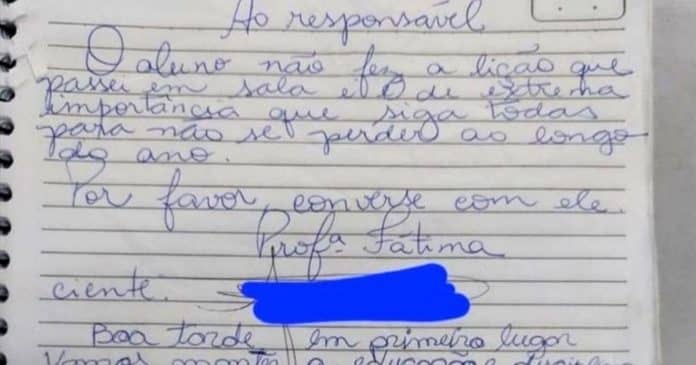 Ao responsável
O aluno não fez a lição que
passei em sala e é de extrema
importância que siga todas
para não se perder ao longo
do ano.
Por favor, converse com ele.
Profª. Fátima
ciente.
Boa tarde em primeiro lugar
Vamos a educação